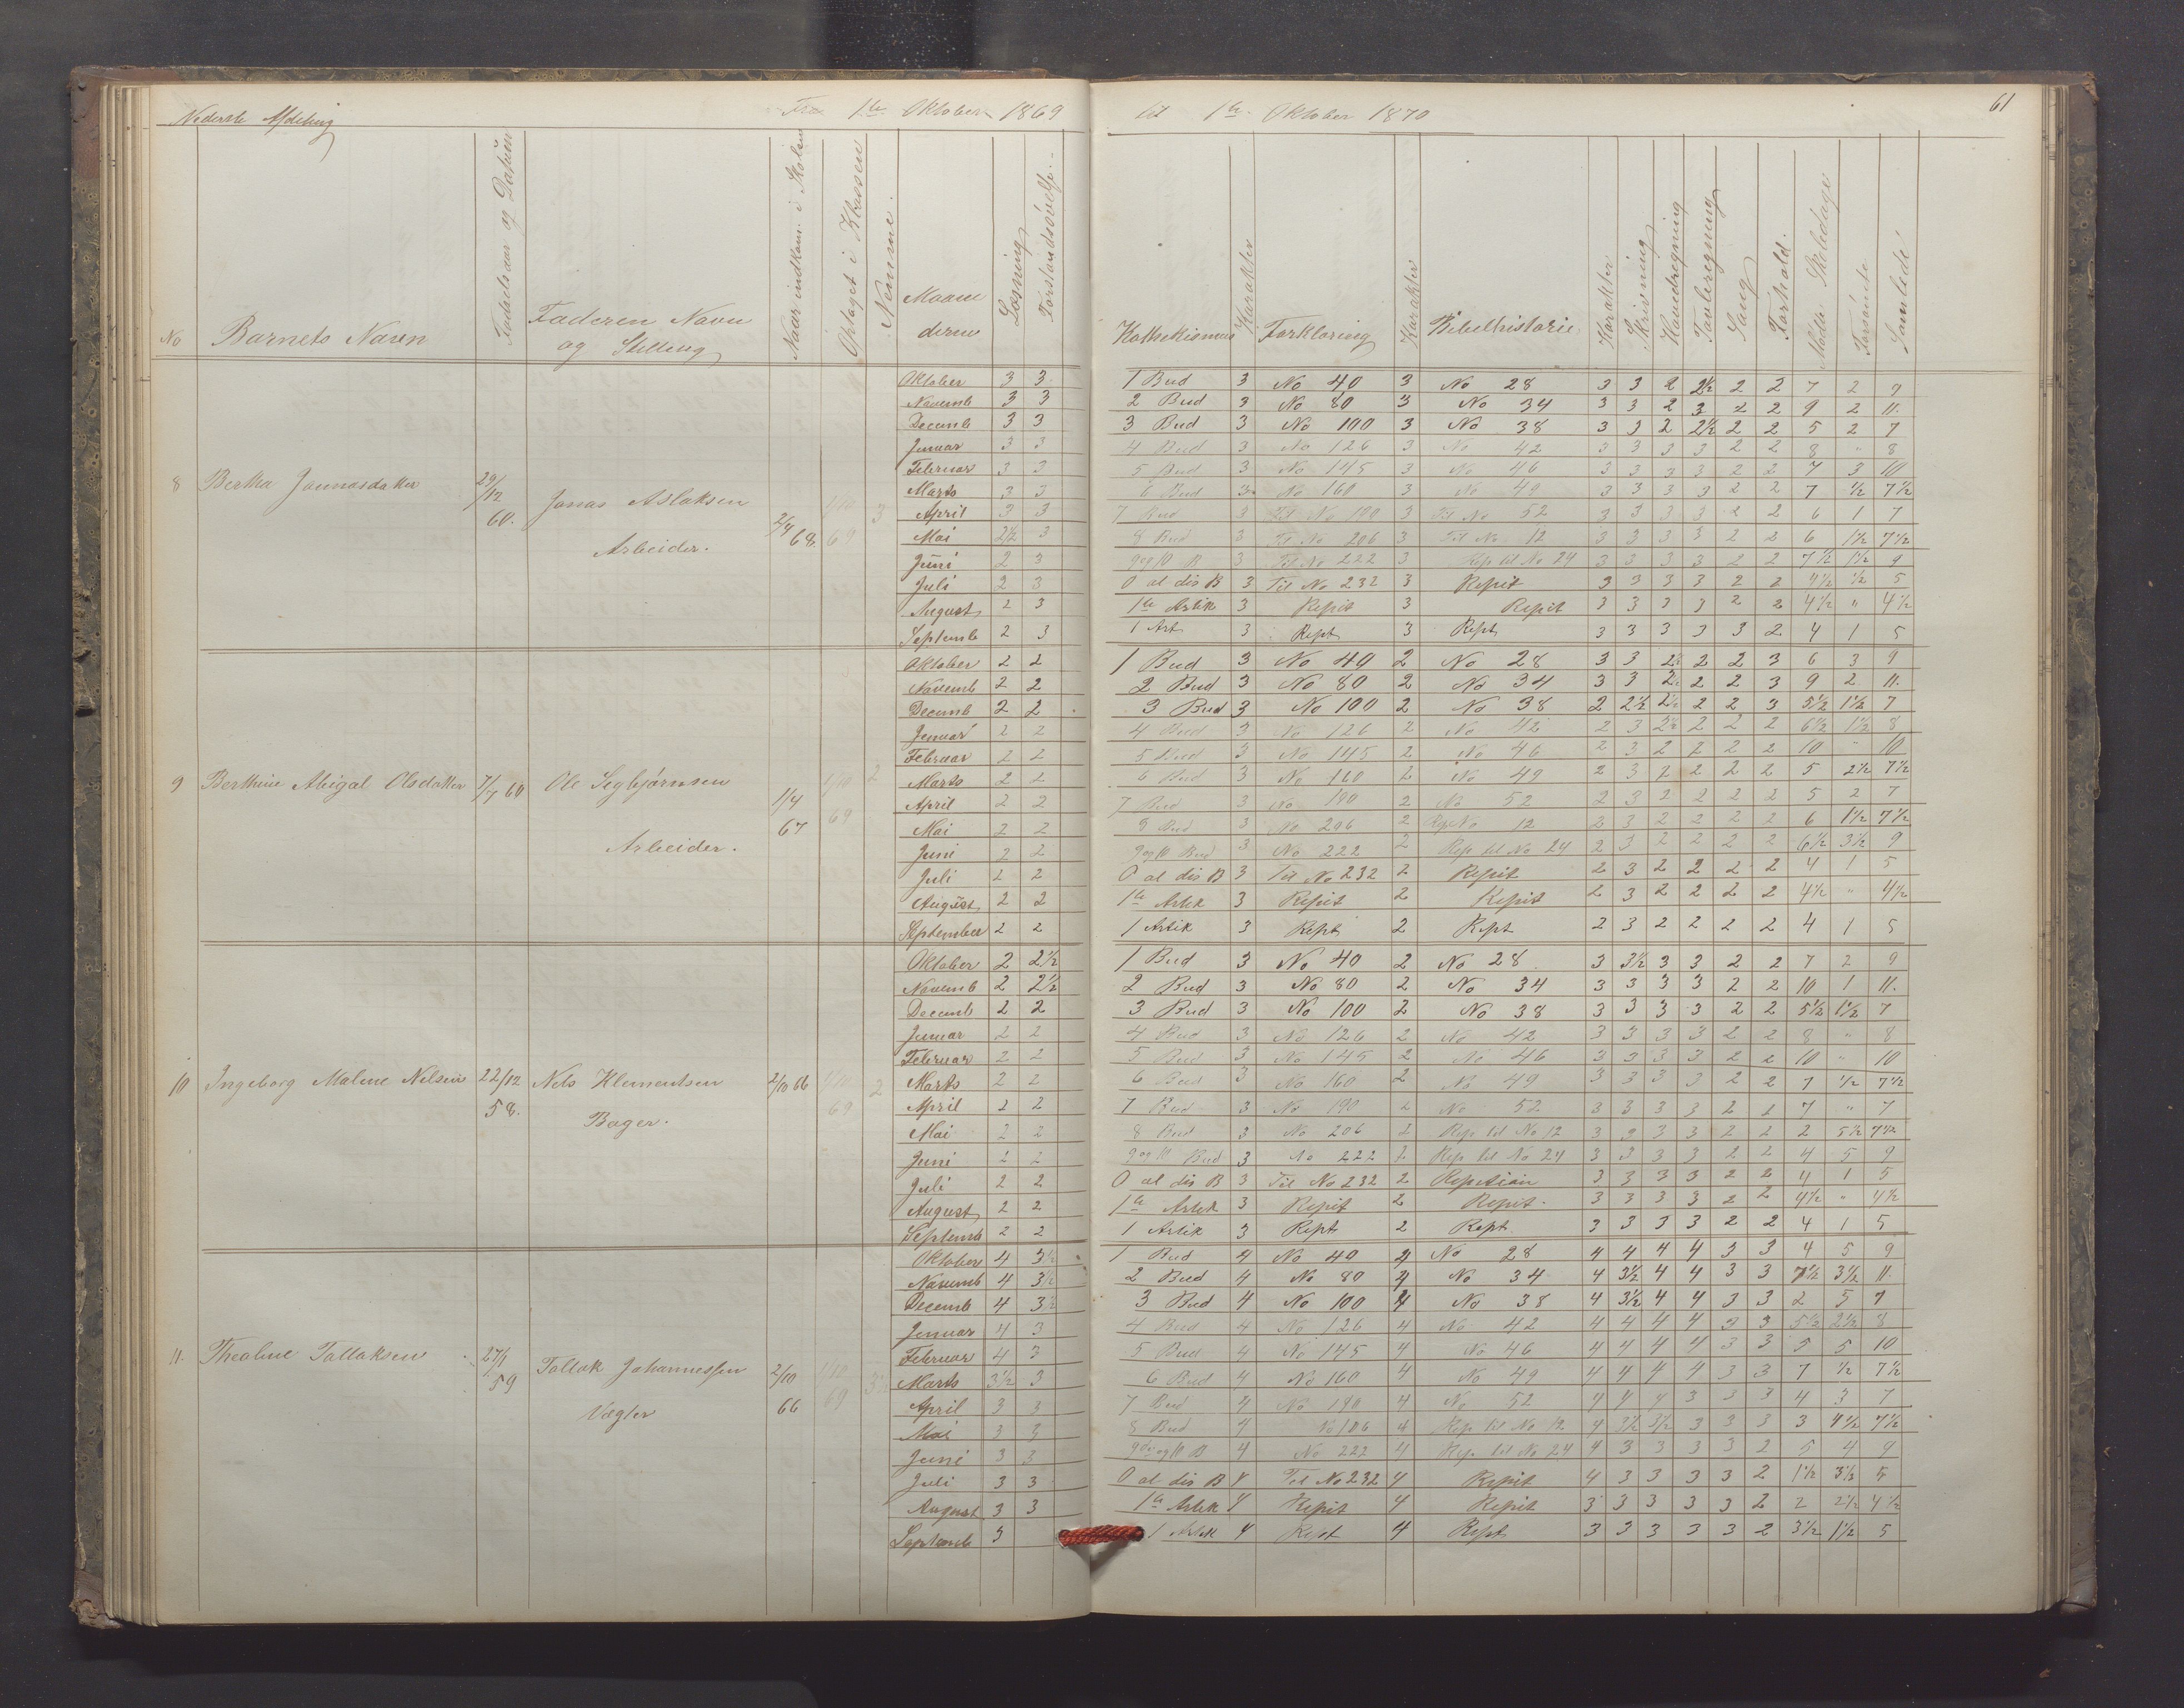 Nederste Afdeling Fra 1te Oktober 1869 til 1te Oktober 1870 61
No Barnets Navn Fødselsaar og Datum Faderen Navn og Stilling Naar indkom. i Skolen Optaget i Klassen Nemme. Maanederne Læsning Forstandsøvelse. Kathekismus Karakter Forklaring Karakter Bibelhistorie Karakter Skrivning Hovedregning Tavleregning Sang Forhold. Mødte Skoledage Forsømte Samlede
8 Bertha Jonnasdatter 29/12 60. Jonas Aslaksen Arbeider. 2/4 68 1/10 69 3
Oktober 3 3 1 Bud 3 No 40 3 No 28 3 3 2 2½ 2 2 7 2 9
Novemb 3 3 2 Bud 3 No 80 3 No 34 3 3 2 3 2 2 9 2 11.
Decemb 3 3 3 Bud 3 No 100 3 No 38 3 3 2 2½ 2 2 5 2 7
Januar 3 3 4 Bud 3 No 126 3 No 42 3 3 3 3 2 2 8 " 8
Februar 3 3 5 Bud 3 No 145 3 No 46 3 3 3 3 2 2 7 3 10
Marts 3 3 6 Bud 3 No 160 3 No 49 3 3 3 3 2 2 7 ½ 7½
April 3 3 7 Bud 3 Til No 190 3 Til No 52 3 3 3 3 2 2 6 1 7
Mai 2½ 3 8 Bud 3 Til No 206 3 Til No 12 3 3 3 3 2 2 6 1½ 7½
Juni 2 3 9 og 10 B 3 Til No 222 3 Rep til No 24 3 3 3 3 2 2 7½ 1½ 9
Juli 2 3 O al dis B 3 Til No 232 3 Repit 3 3 3 3 2 2 4½ ½ 5
August 2 3 1te Artik 3 Repit 3 Repit 3 3 3 3 2 2 4½ " 4½
Septemb 2 3 1 Art 3 Rept 3 Rept 3 3 3 3 3 2 4 1 5
9 Berthine Abigal Olsdatter 7/7 60 Ole Segbjørnsen Arbeider. 1/4 67 1/10 69 2
Oktober 2 2 1 Bud 3 No 40 2 No 28 3 3 2½ 2 2 3 6 3 9
Novemb 2 2 2 Bud 3 No 80 2 No 34 3 3 2 2 2 3 9 2 11.
Decemb 2 2 3 Bud 3 No 100 2 No 38 2 2½ 2½ 2 2 3 5½ 1½ 7
Januar 2 2 4 Bud 3 No 126 2 No 42 2 3 2½ 2 2 2 6½ 1½ 8
Februar 2 2 5 Bud 3 No 145 2 No 46 2 3 2 2 2 2 10 " 10
Marts 2 2 6 Bud 3 No 160 2 No 49 2 3 2 2 2 2 5 2½ 7½
April 2 2 7 Bud 3 No 190 2 No 52 2 3 2 2 2 2 5 2 7
Mai 2 2 8 Bud 3 No 206 2 Rep No 12 2 3 2 2 2 2 6 1½ 7½
Juni 2 2 9 og 10 Bud 3 No 222 2 Rep til No 24 2 3 2 2 2 2 6½ 3½ 9
Juli 2 2 O al dis B 3 Til No 232 2 Repit 2 3 2 2 2 2 4 1 5
August 2 2 1te Artik 3 Repit 2 Repit 2 3 2 2 2 2 4½ " 4½
September 2 2 1 Artik 3 Rept 2 Rept 2 3 2 2 2 2 4 1 5
10 Ingeborg Maline Nilsen 22/12 58. Nils Klementsen Bager. 2/10 66 1/10 69 2
Oktober 2 2½ 1 Bud 3 No 40 2 No 28 3 3½ 3 3 2 2 7 2 9
Novemb 2 2½ 2 Bud 3 No 80 2 No 34 3 3 3 3 2 2 10 1 11.
Decemb 2 2 3 Bud 3 No 100 2 No 38 3 3 3 3 2 2 5½ 1½ 7
Januar 2 2 4 Bud 3 No 126 2 No 42 3 3 3 3 2 2 8 " 8
Februar 2 2 5 Bud 3 No 145 2 No 46 3 3 3 3 2 2 10 " 10
Marts 2 2 6 Bud 3 No 160 2 No 49 3 3 3 3 2 2 7 ½ 7½
April 2 2 7 Bud 3 No 190 2 No 52 3 3 3 3 2 2 7 " 7
Mai 2 2 8 Bud 3 No 206 2 Rep til No 12 3 3 3 3 2 2 2 5½ 7½
Juni 2 2 9 og 10 Bud 3 No 222 2 Rep til No 24 3 3 3 3 2 2 4 5 9
Juli 2 2 O al dis B 3 Til No 232 2 Repetian 3 3 3 3 2 2 4 1 5
August 2 2 1te Artik 3 Repit 2 Repit. 3 3 3 3 2 2 4½ " 4½
Septemb 2 2 1 Artik 3 Rept 2 Rept. 3 3 3 3 2 2 4 1 5
11. Theoline Tallaksen 27/1 59 Tallak Johannessen Vægter 2/10 66 1/10 69 3½
Oktober 4 3½ 1 Bud 4 No 40 4 No 28 4 4 4 4 3 3 4 5 9
Novemb 4 3½ 2 Bud 4 No 80 4 No 34 4 3½ 4 4 3 3 7½ 3½ 11.
Decemb 4 3½ 3 Bud 4 No 100 4 No 38 4 3½ 4 4 3 3 2 5 7
Januar 4 3 4 Bud 4 No 126 4 No 42 4 4 4 4 3 3 5½ 2½ 8
Februar 4 3 5 Bud 4 No 145 4 No 46 4 4 4 4 3 3 5 5 10
Marts 3½ 3 6 Bud 4 No 160 4 No 49 4 4 4 4 3 3 7 ½ 7½
April 3 3 7 Bud 4 No 190 4 No 52 4 4 4 3 3 3 4 3 7
Mai 3 3 8 Bud 4 No 106 4 Rep til No 12 4 3½ 3½ 3 3 3 3 4½ 7½
Juni 3 3 9de og 10 B 4 No 222 4 Rep. til No 24 4 3 3 3 3 2 5 4 9
Juli 3 3 O al dis B 4 Til No 232 4 Repit 4 3 3 3 3 2 1½ 3½ 5
August 3 3 1te Artik 4 Repit 4 Repit 3 3 3 3 3 2 2 2½ 4½
Septemb 3 1 Artik 4 Rept 4 Rept 3 3 3 3 3 2 3½ 1½ 5